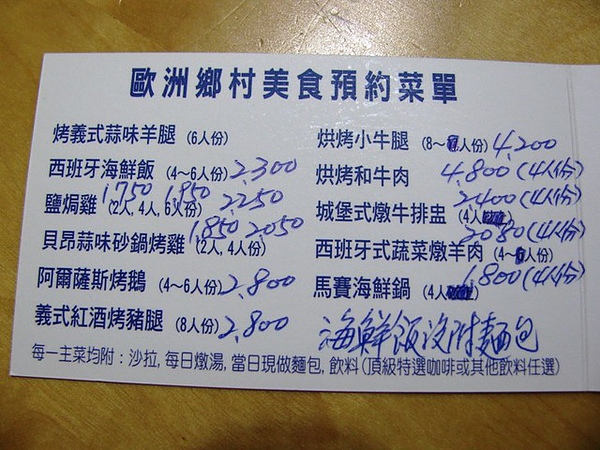 歐洲鄉村美食預約菜單
烤義式蒜味羊腿 (6人份)
西班牙海鮮飯 (4~6人份) 2,300
1,750 1,950 2,250
鹽焗雞 (2人, 4人, 6人份)
1,850 2050
貝昂蒜味砂鍋烤雞 (2人, 4人份)
阿爾薩斯烤鵝 (4~6人份) 2,800
義式紅酒烤豬腿 (8人份) 2,800
烘烤小牛腿 (8~人份) 4,200
烘烤和牛肉 4,800 (4人份)
2400 (4人份)
城堡式燉牛排盅 (4人
2080 (4人份)
西班牙式蔬菜燉羊肉 (4~人份)
1,800 (4人份)
馬賽海鮮鍋 (4人
海鮮飯沒附麵包
每一主菜均附：沙拉, 每日燉湯, 當日現做麵包, 飲料 (頂級特選咖啡或其他飲料任選)